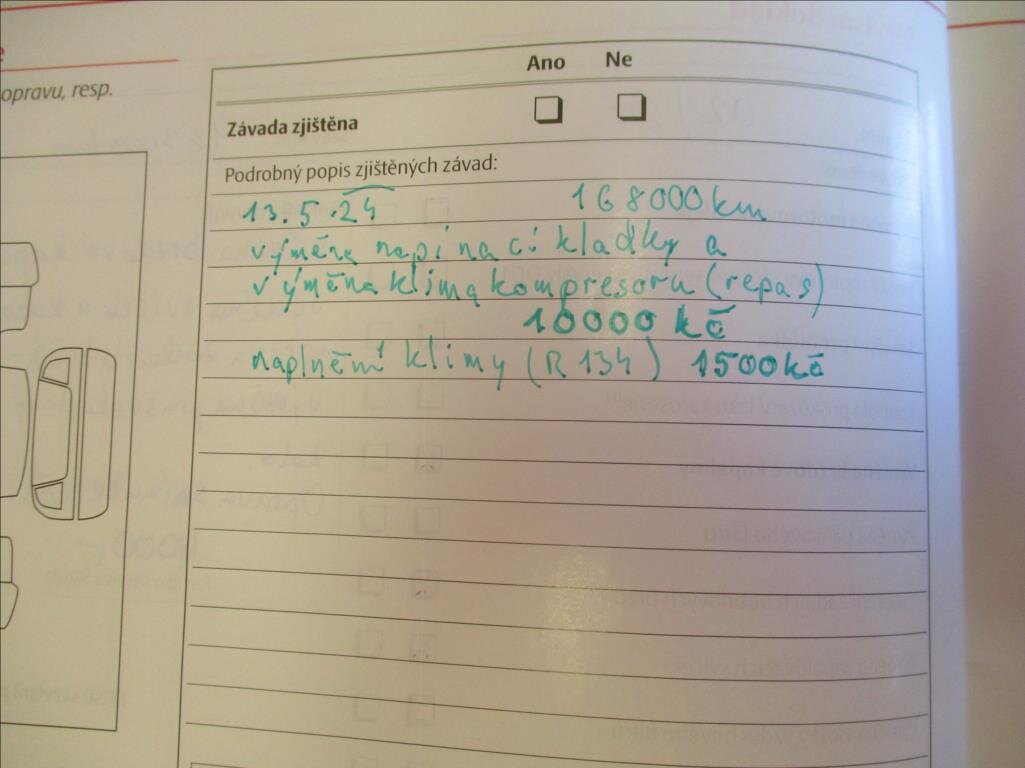 opravu, resp.
Ano Ne
Závada zjištěna
Podrobný popis zjištěných závad:
13.5.24 168000km
výměna napínací kladky a
výměna klima kompresoru (repas)
10000 kč
naplnění klimy (R 134) 1500kč